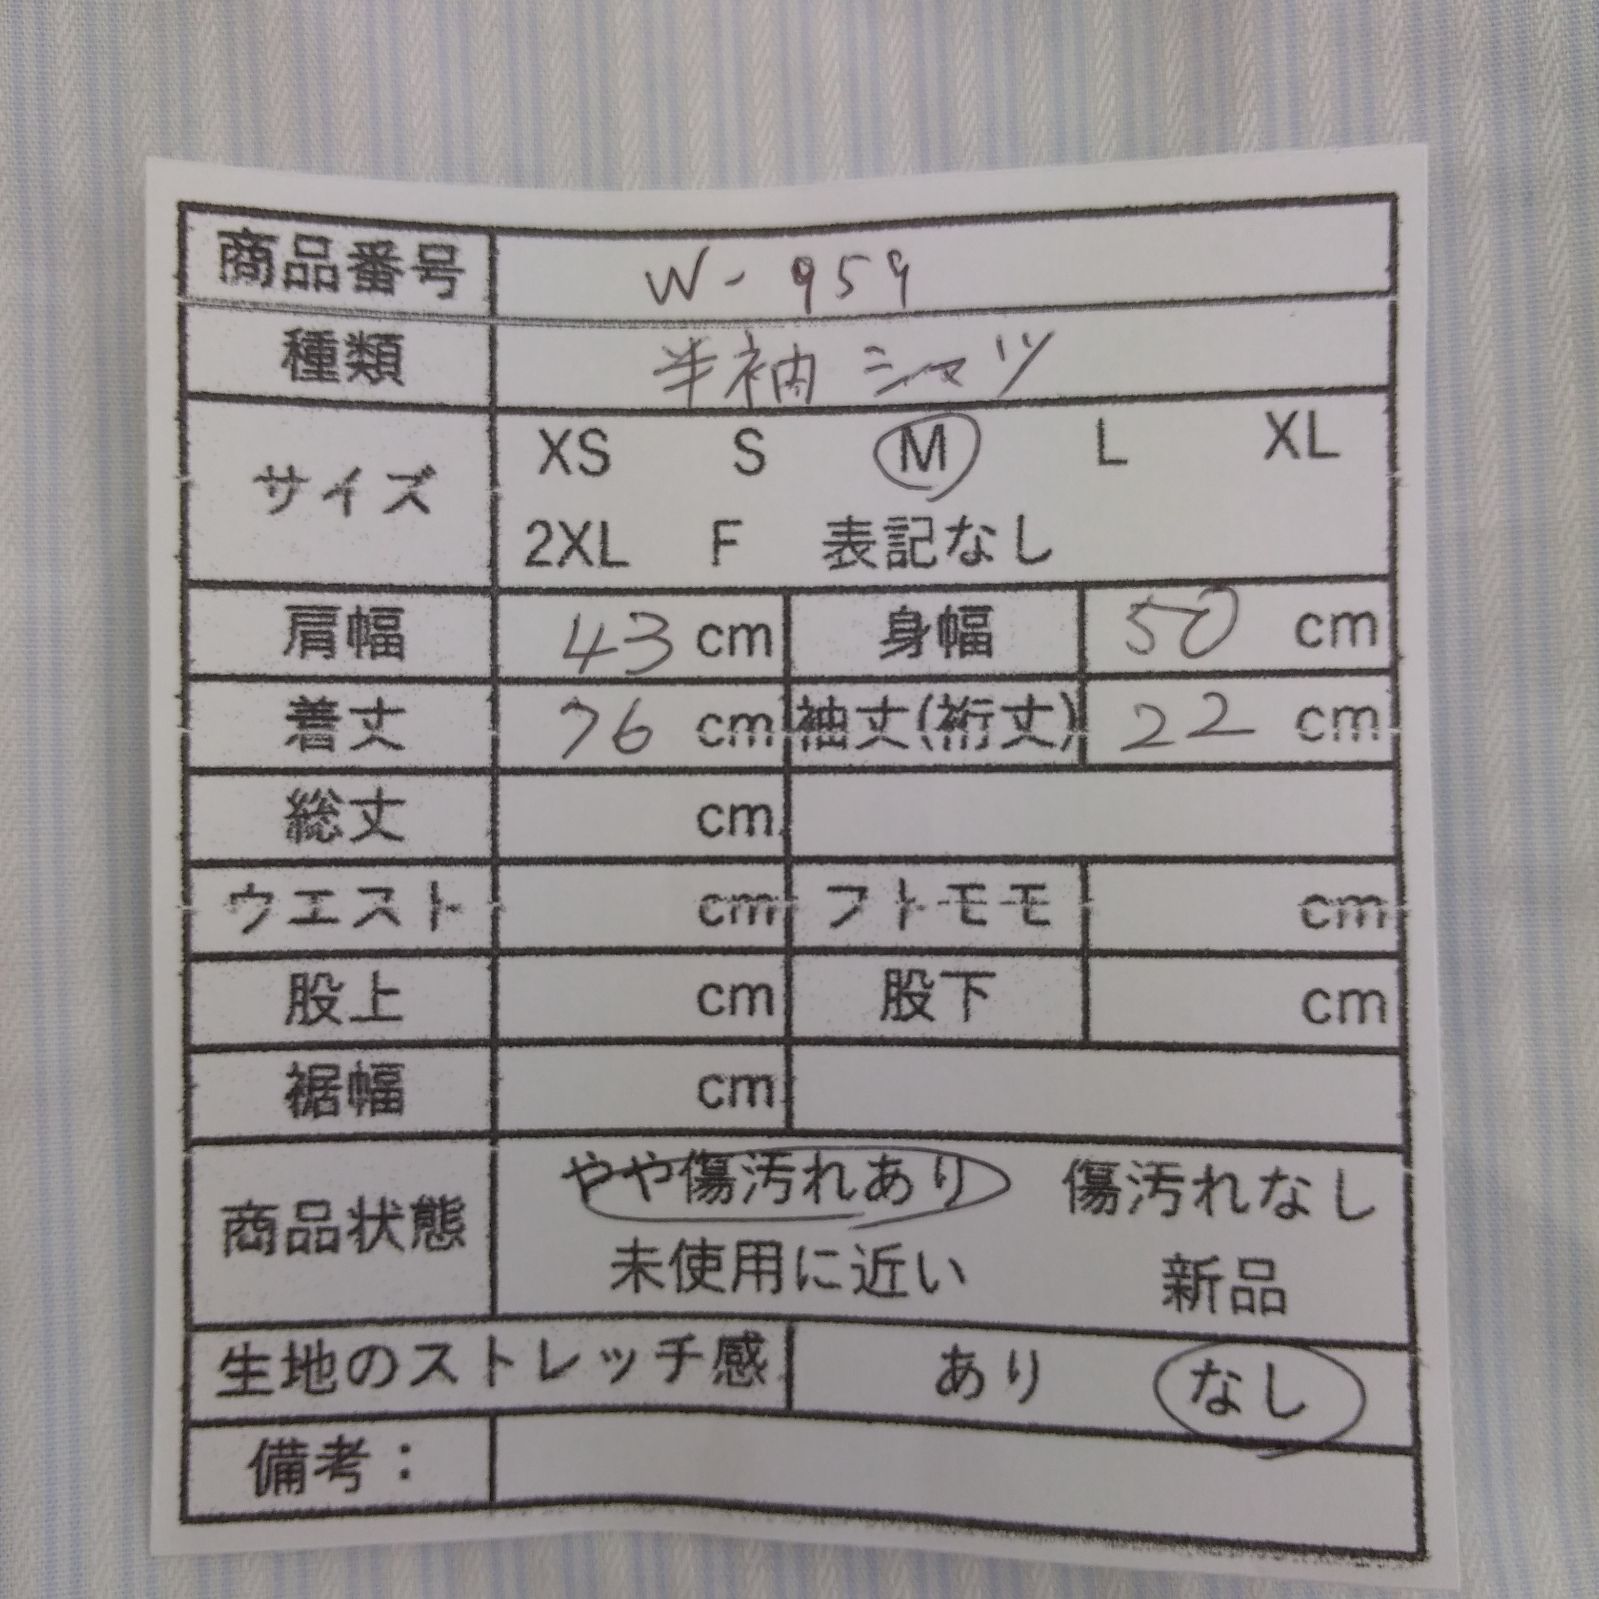 商品番号 W-959
種類 半袖シャツ
サイズ XS S M L XL
2XL F 表記なし
肩幅 43 cm 身幅 50 cm
着丈 76 cm 袖丈(裄丈) 22 cm
総丈 cm
ウエスト cm フトモモ cm
股上 cm 股下 cm
裾幅 cm
商品状態 やや傷汚れあり 傷汚れなし
未使用に近い 新品
生地のストレッチ感 あり なし
備考：